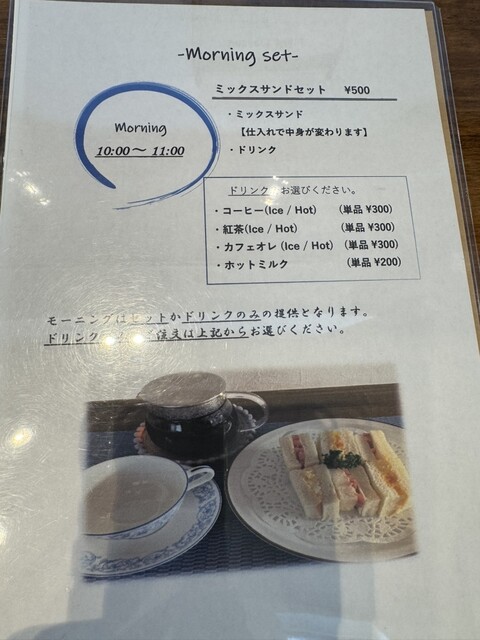 -Morning set-
ミックスサンドセット ¥500
・ミックスサンド
【仕入れで中身が変わります】
・ドリンク
Morning
10:00～ 11:00
ドリンク お選びください。
・コーヒー(Ice / Hot) (単品 ¥300)
・紅茶(Ice / Hot) (単品 ¥300)
・カフェオレ (Ice / Hot) (単品 ¥300)
・ホットミルク (単品 ¥200)
モーニングはセットかドリンクのみの提供となります。
ドリンク 注文は上記からお選びください。